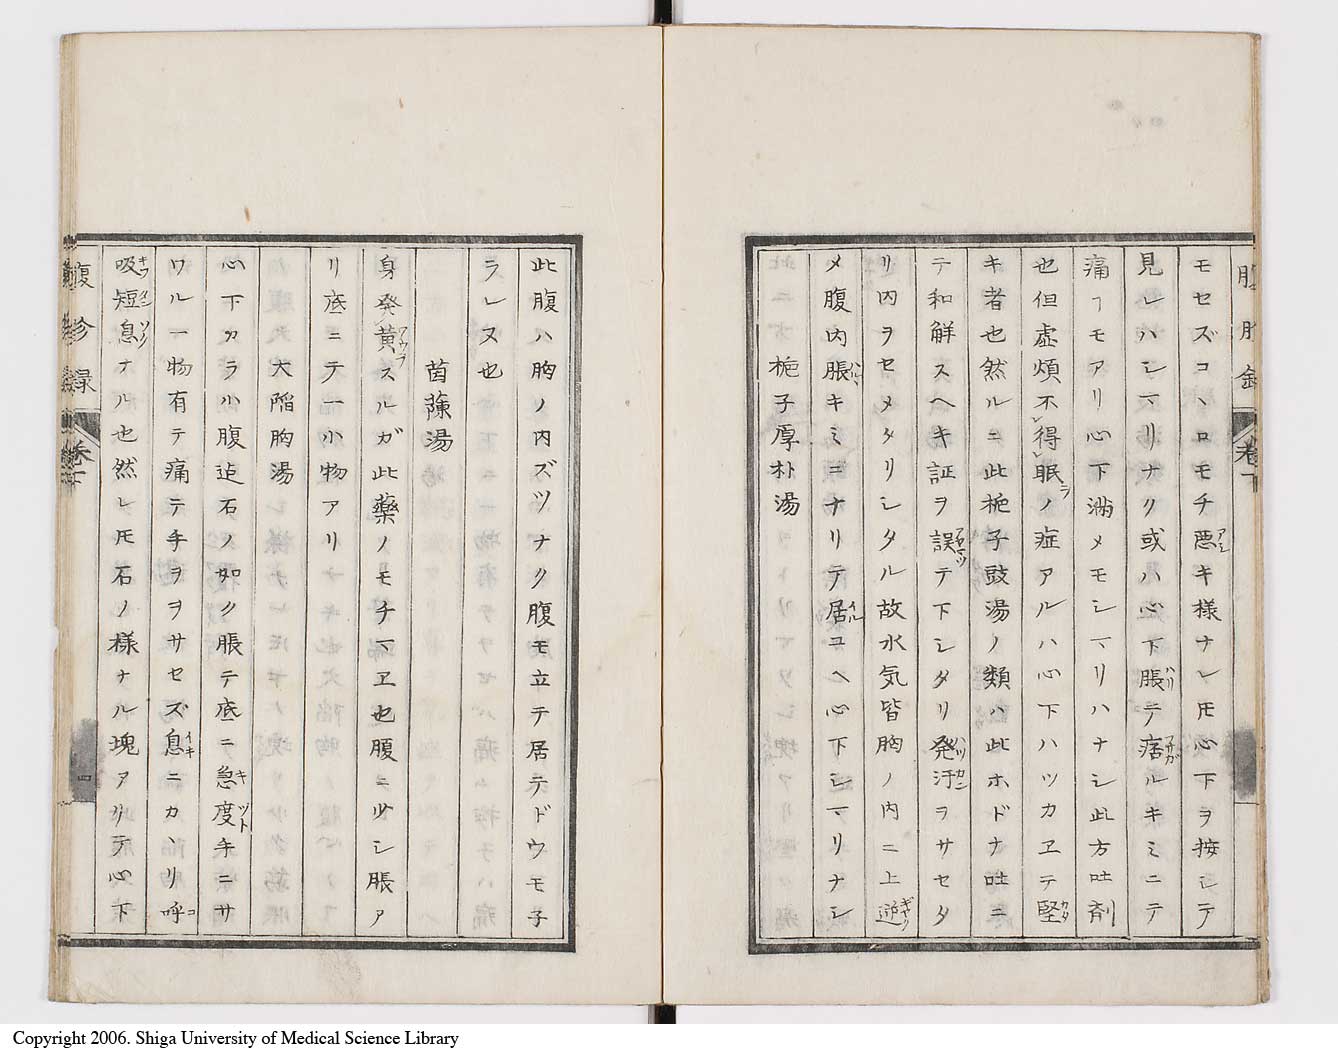 モセズコヽロモチ悪キ様ナレㇳモ心下ヲ按シテ
見レハシマリナク或ハ心下脹テ痞ルキミニテ
痛フモアリ心下満メモシマリハナシ此方吐剤
也但虚煩不得眠ノ症アルハ心下ハツカヱテ堅
キ者也然ルニ此梔子豉湯ノ類ハ此ホドナ吐ニ
テ和解スヘキ証ヲ誤テ下シタリ発汗ヲサセタ
リ内ヲセメタリシタル故水気皆胸ノ内ニ上逆
メ腹内脹キミニナリテ居ユヘ心下シマリナシ
梔子厚朴湯
腹診録 巻下
此腹ハ胸ノ内ズツナク腹モ立テ居テドウモ子
ラレヌ也
茵蔯湯
身発黄スルガ此薬ノモチマヱ也腹ニ少シ脹ア
リ底ニテ一小物アリ
大陥胸湯
心下カラ小腹迠石ノ如ク脹テ底ニ急度手ニサ
ワル一物有テ痛テ手ヲサセズ息ニカヽリ呼
吸短息ナル也然レㇳモ石ノ様ナル塊アリテ心下
腹診録 巻下 四
Copyright 2006. Shiga University of Medical Science Library